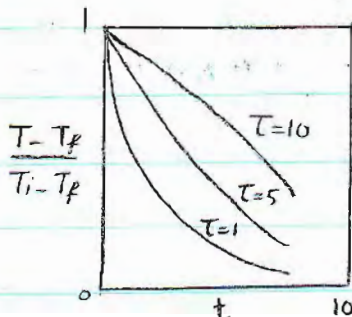 1
T - Tf
Ti - Tf
τ=10
τ=5
τ=1
0
t
10